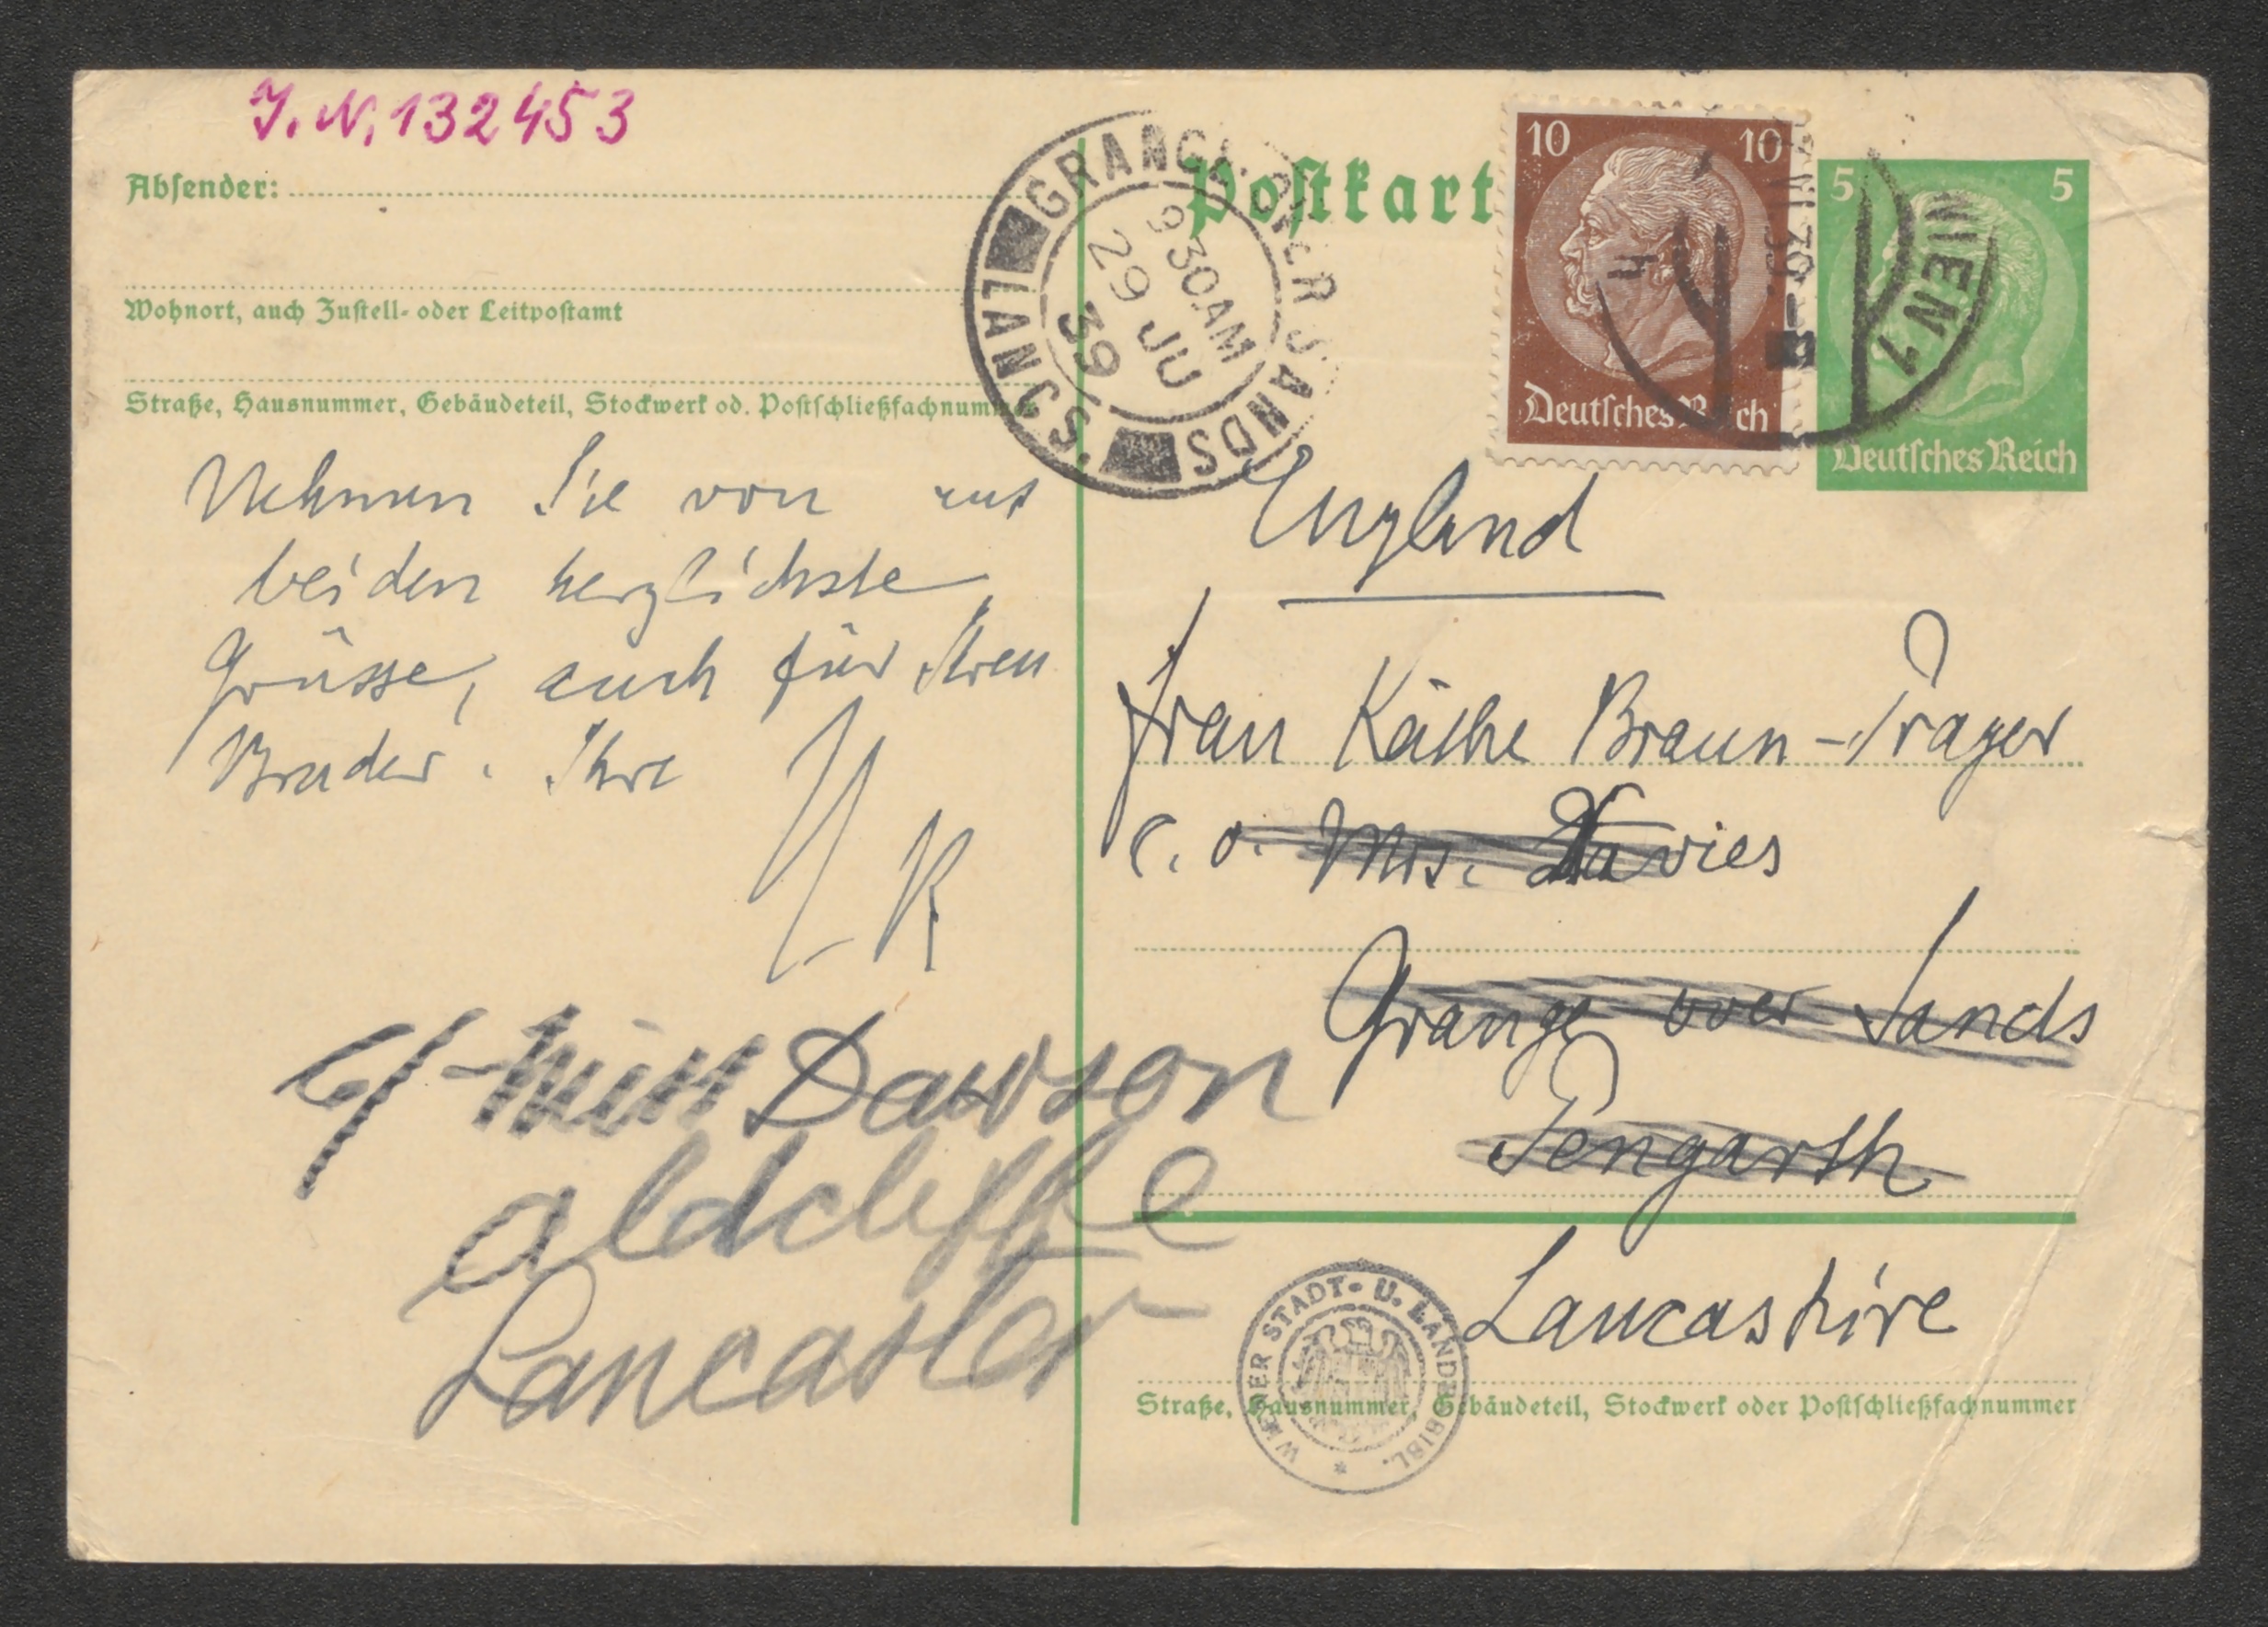 J.N. 132453
Absender:
Wohnort, auch Zustell- oder Leitpostamt
Straße, Hausnummer, Gebäudeteil, Stockwerk od. Postschließfachnummer
Nehmen Sie von uns
beiden herzlichste
Grüsse, auch für Ihren
Bruder. Ihre
K
c/- Miss Dawson
Aldcliffe
Lancaster
GRANGE OVER SANDS
LANCS.
9 30 AM
29 JU
39
Postkart
10 10
Deutsches Reich
5 5
Deutsches Reich
WIEN 1
England
Frau Käthe Braun-Prager
c. o. Mrs. Davies
Grange over Sands
Pengarth
Lancashire
Straße, Hausnummer, Gebäudeteil, Stockwerk oder Postschließfachnummer
WIENER STADT- U. LANDESBIBL.